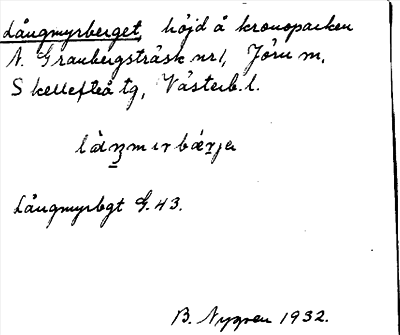 Långmyrberget, höjd å kronoparken
N. Granbergsträsk nr 1, Jörn sn,
Skellefteå tg, Västerb. l.
Långmyrbgt G. 43.
B. Nygren 1932.